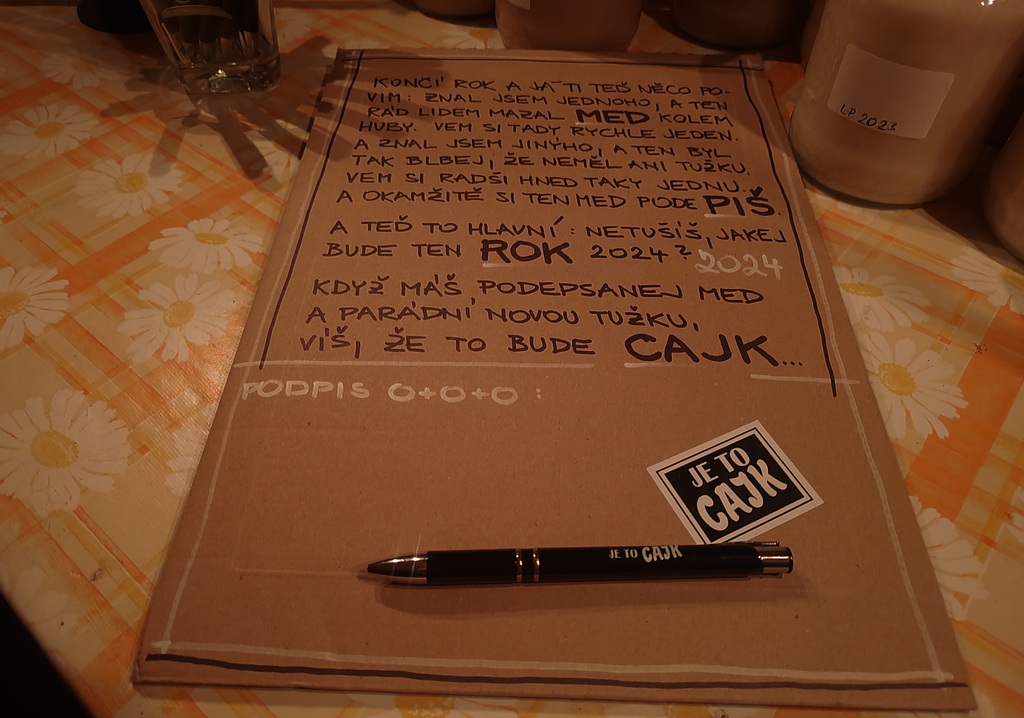 KONČÍ ROK A JÁ TI TEĎ NĚCO PO-
VÍM: ZNAL JSEM JEDNOHO, A TEN
RÁD LIDEM MAZAL MED KOLEM
HUBY. VEM SI TADY RYCHLE JEDEN.
A ZNAL JSEM JINÝHO, A TEN BYL
TAK BLBEJ, ŽE NEMĚL ANI TUŽKU.
VEM SI RADŠI HNED TAKY JEDNU.
A OKAMŽITĚ SI TEN MED PODEPIŠ.
A TEĎ TO HLAVNÍ: NETUŠÍŠ, JAKEJ
BUDE TEN ROK 2024?
2024
KDYŽ MÁŠ PODEPSANEJ MED
A PARÁDNÍ NOVOU TUŽKU,
VÍŠ, ŽE TO BUDE CAJK...
PODPIS O+O+O:
JE TO
CAJK
JE TO CAJK
LP 2023